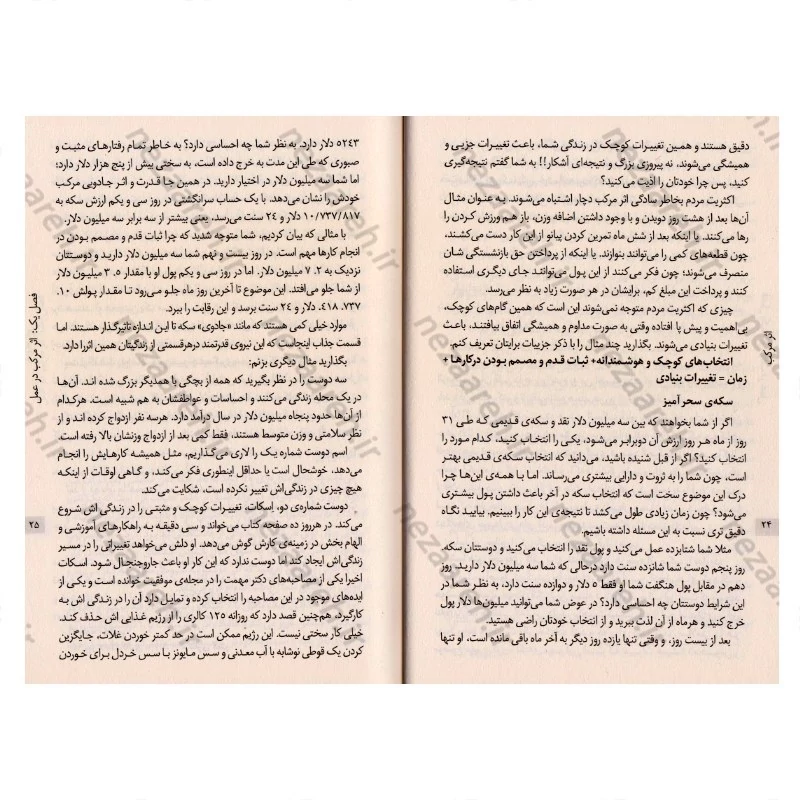 دقیق هستند و همین تغییرات کوچک در زندگی شما، باعث تغییرات جزیی و
همیشگی می‌شوند، نه پیروزی بزرگ و نتیجه‌ای آشکار!! به شما گفتم نتیجه‌گیری
کنید، پس چرا خودتان را اذیت می‌کنید؟
اکثریت مردم بخاطر سادگی اثر مرکب دچار اشتباه می‌شوند. به عنوان مثال
آن‌ها بعد از هشت روز دویدن و با وجود داشتن اضافه وزن، باز هم ورزش کردن را
رها می‌کنند. یا اینکه بعد از شش ماه تمرین کردن پیانو از این کار دست می‌کشند،
چون قطعه‌های کمی را می‌توانند بنوازند. یا اینکه از پرداختن حق بازنشستگی شان
منصرف می‌شوند؛ چون فکر می‌کنند از این پول می‌توانند جای دیگری استفاده
کنند و پرداخت این مبلغ کم، برایشان در هر صورت زیاد به نظر می‌رسد.
چیزی که اکثریت مردم متوجه نمی‌شوند این است که همین گام‌های کوچک،
بی‌اهمیت و پیش پا افتاده وقتی به صورت مداوم و همیشگی اتفاق بیافتند، باعث
تغییرات بنیادی می‌شوند. بگذارید چند مثال را با ذکر جزییات برایتان تعریف کنم.
انتخاب‌های کوچک و هوشمندانه+ ثبات قدم و مصمم بودن درکارها +
زمان = تغییرات بنیادی
سکه‌ی سحر آمیز
اگر از شما بخواهند که بین سه میلیون دلار نقد و سکه‌ی قدیمی که طی ۳۱
روز از ماه هر روز ارزش آن دوبرابر می‌شود، یکی را انتخاب کنید، کدام مورد را
انتخاب کنید؟ اگر از قبل شنیده باشید، می‌دانید که انتخاب سکه‌ی قدیمی بهتر
است، چون شما را به ثروت و دارایی بیشتری می‌رساند. اما با همه‌ی این‌ها چرا
درک این موضوع سخت است که انتخاب سکه در آخر باعث داشتن پول بیشتری
می‌شود؟ چون زمان زیادی طول می‌کشد تا نتیجه‌ی این کار را ببینیم. بیایید نگاه
دقیق تری نسبت به این مسئله داشته باشیم.
مثلا شما شتابزده عمل می‌کنید و پول نقد را انتخاب می‌کنید و دوستتان سکه.
روز پنجم دوست شما شانزده سنت دارد درحالی که شما سه میلیون دلار دارید. روز
دهم در مقابل پول هنگفت شما او فقط ۵ دلار و دوازده سنت دارد، به نظر شما در
این شرایط دوستتان چه احساسی دارد؟ در عوض شما می‌توانید میلیون‌ها دلار پول
خرج کنید و هرماه از آن لذت ببرید و از انتخاب خودتان راضی هستید.
بعد از بیست روز، و وقتی تنها یازده روز دیگر به آخر ماه باقی مانده است، او تنها
اثر مرکب
۲۴
۵۲۴۳ دلار دارد. به نظر شما چه احساسی دارد؟ به خاطر تمام رفتارهای مثبت و
صبوری که طی این مدت به خرج داده است، به سختی بیش از پنج هزار دلار دارد؛
اما شما سه میلیون دلار در اختیار دارید. در همین جا قدرت و اثر جادویی مرکب
خودش را نشان می‌دهد. با یک حساب سرانگشتی در روز سی و یکم ارزش سکه به
۱۰/۷۳۷/۸۱۷ دلار و ۲۴ سنت می‌رسد، یعنی بیشتر از سه برابر سه میلیون دلار.
با مثالی که بیان کردیم، شما متوجه شدید که چرا ثبات قدم و مصمم بودن در
انجام کارها مهم است. در روز بیست و نهم شما سه میلیون دلار دارید و دوستتان
نزدیک به ۲. ۷ میلیون دلار. اما در روز سی و یکم پول او با مقدار ۵. ۳ میلیون دلار
از شما جلو می‌افتد. این موضوع تا آخرین روز ماه جلو می‌رود تا مقدار پولش ۱۰.
۷۳۷. ۴۱۸. دلار و ۲۴ سنت برسد و این رقابت را ببرد.
موارد خیلی کمی هستند که مانند «جادوی» سکه تا این اندازه تأثیرگذار هستند. اما
قسمت جذاب اینجاست که این نیروی قدرتمند درهرقسمتی از زندگیتان همین اثررا دارد.
بگذارید مثال دیگری بزنم:
سه دوست را در نظر بگیرید که همه از بچگی با همدیگر بزرگ شده اند. آن‌ها
در یک محله زندگی می‌کنند و احساسات و عواطفشان به هم شبیه است. هرکدام
از آن‌ها حدود پنجاه میلیون دلار در سال درآمد دارد. هرسه نفر ازدواج کرده اند و از
نظر سلامتی و وزن متوسط هستند، فقط کمی بعد از ازدواج وزنشان بالا رفته است.
اسم دوست شماره یک را لاری می‌گذاریم، مثل همیشه کارهایش را انجام
می‌دهد، خوشحال است یا حداقل اینطوری فکر می‌کند، و گاهی اوقات از اینکه
هیچ چیزی در زندگی‌اش تغییر نکرده است، شکایت می‌کند.
دوست شماره‌ی دو، اسکات، تغییرات کوچک و مثبتی را در زندگی اش شروع
می‌کند. در هرروز ده صفحه کتاب می‌خواند و سی دقیقه به راهکارهای آموزشی و
الهام بخش در زمینه‌ی کارش گوش می‌دهد. او دلش می‌خواهد تغییراتی را در مسیر
زندگی‌اش ایجاد کند اما دوست ندارد که این کار او باعث جاروجنجال شود. اسکات
اخیرا یکی از مصاحبه‌های دکتر مهمت را در مجله‌ی موفقیت خوانده است و یکی از
ایده‌های موجود در این مصاحبه را انتخاب کرده و تمایل دارد آن را در زندگی اش به
کارگیرد. هم‌چنین قصد دارد که روزانه ۱۲۵ کالری را از رژیم غذایی اش حذف کند.
خیلی کار سختی نیست. این رژیم ممکن است در حد کمتر خوردن غلات، جایگزین
کردن یک قوطی نوشابه با آب معدنی و سس مایونز با سس خردل برای خوردن
فصل یک: اثر مرکب در عمل
۲۵
nezaareh.ir